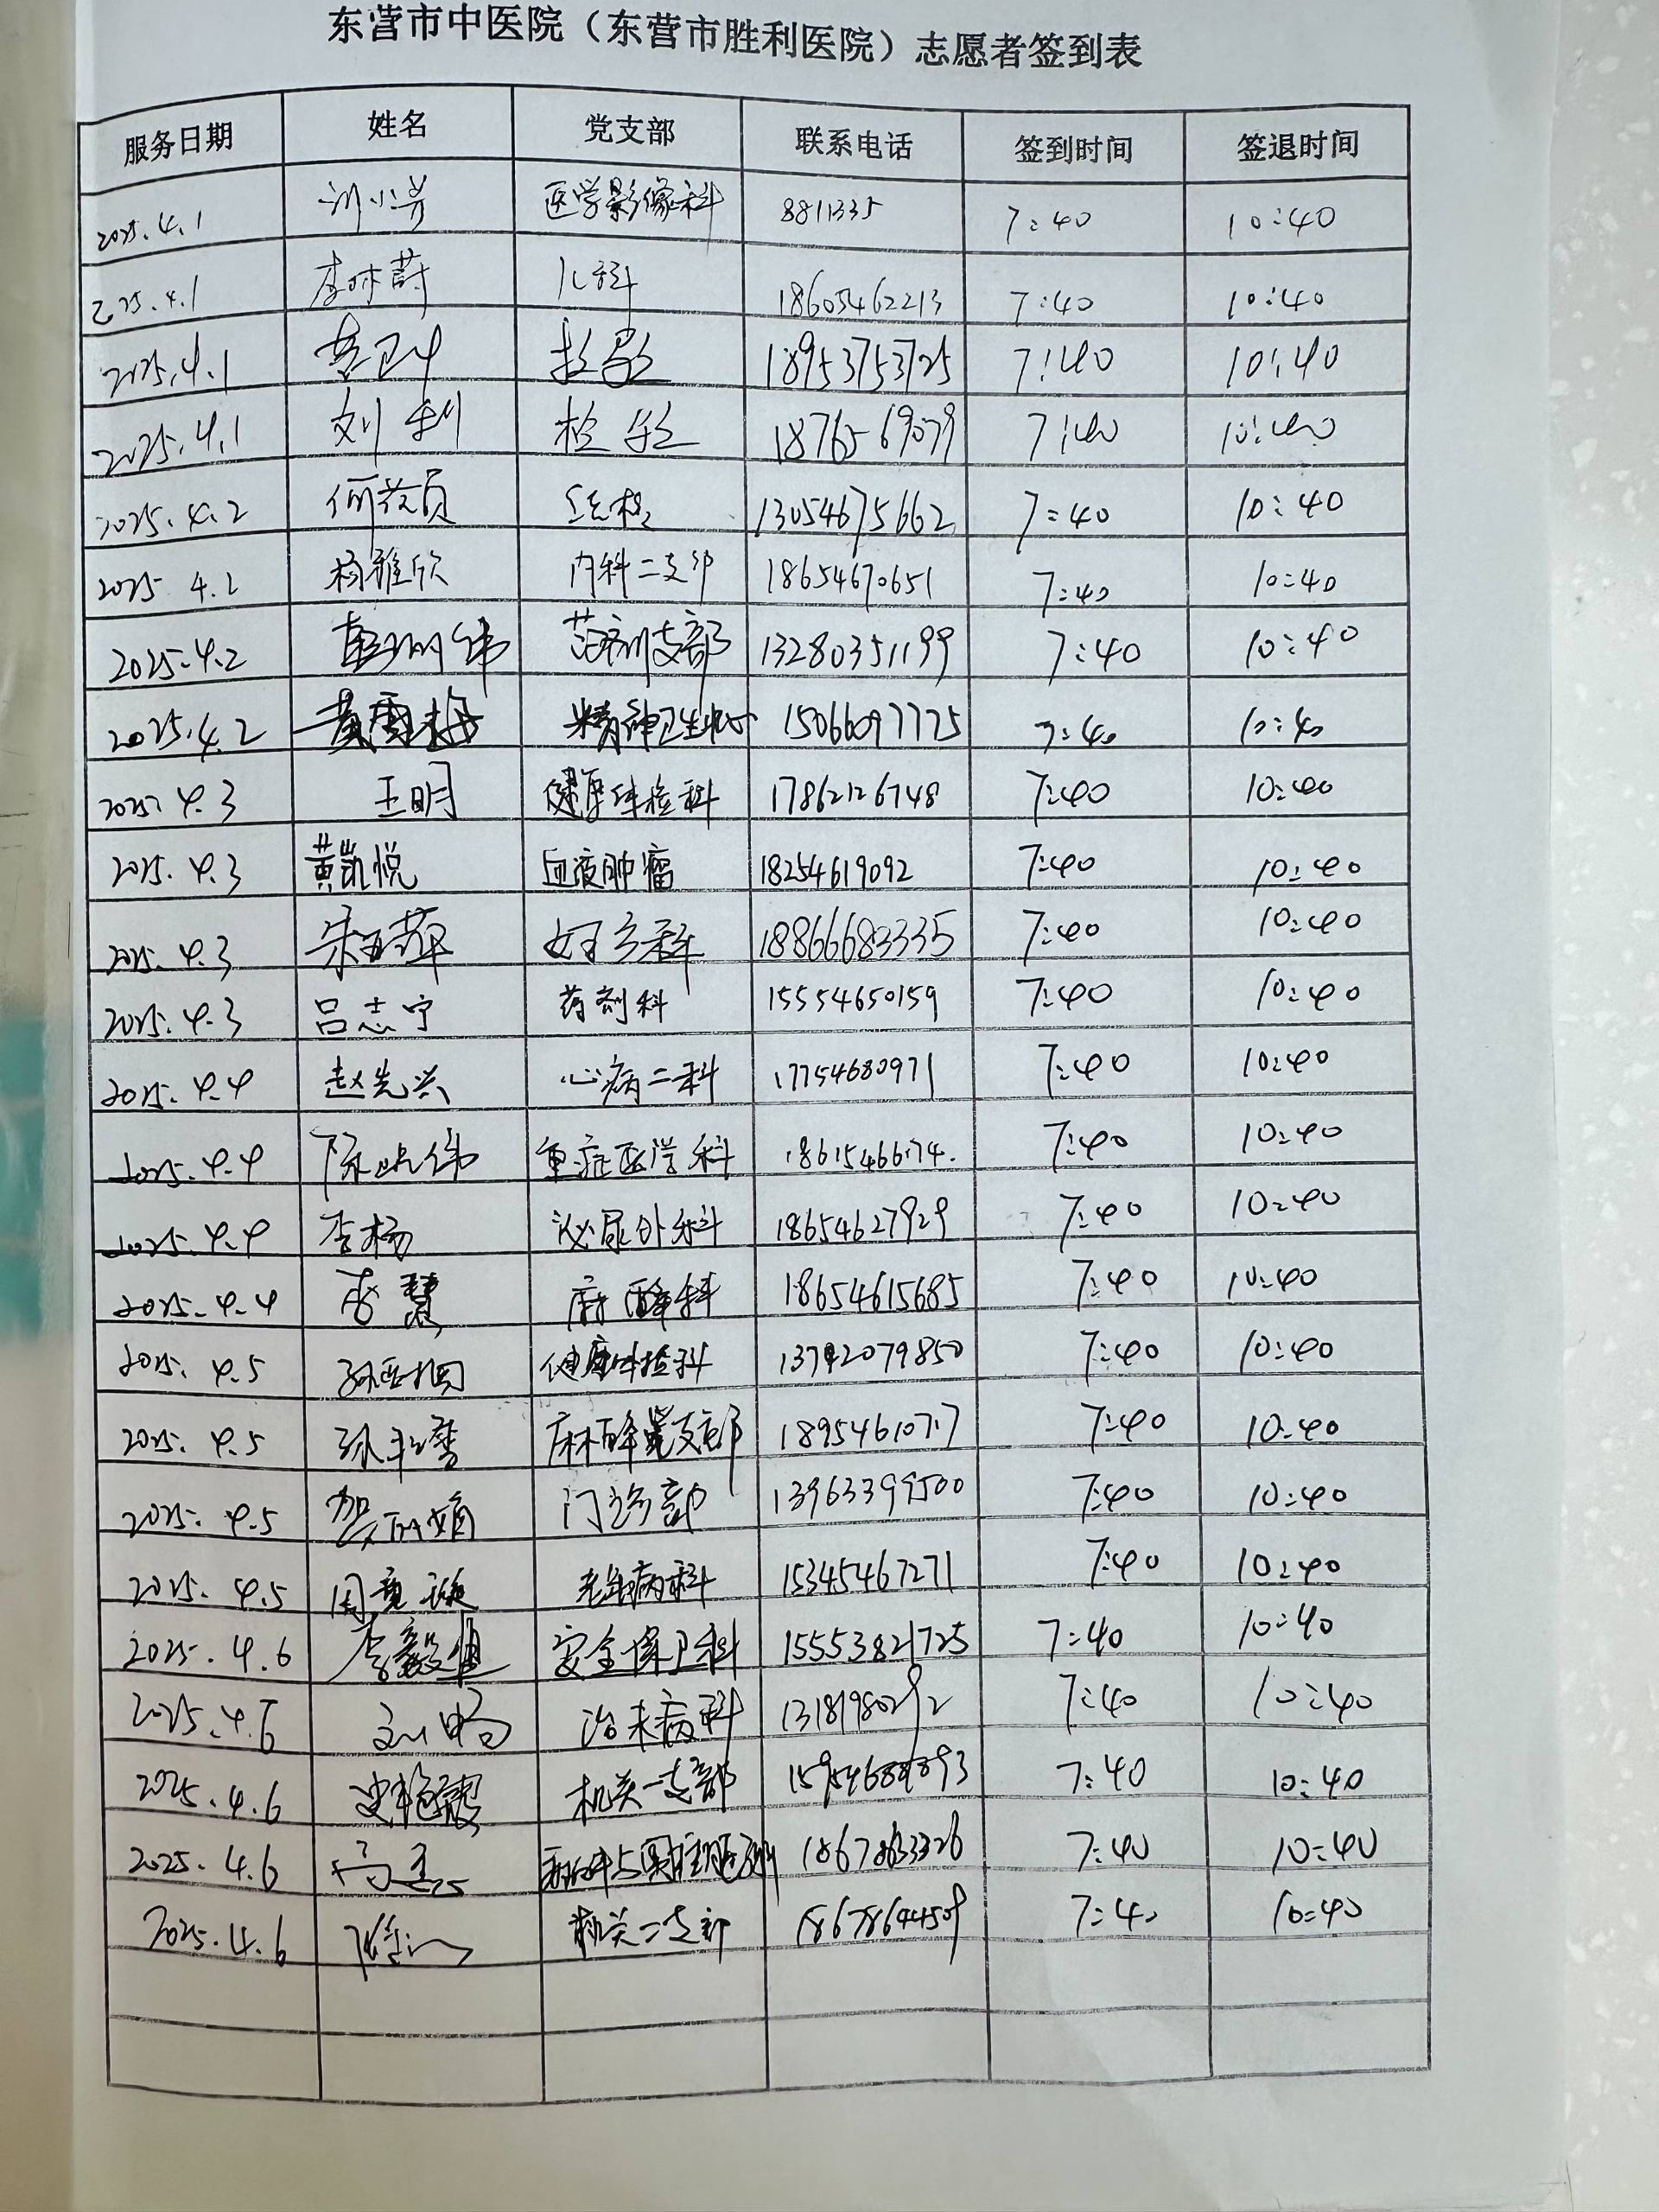 东营市中医院（东营市胜利医院）志愿者签到表
服务日期 姓名 党支部 联系电话 签到时间 签退时间
2025.4.1 刘小芳 医学影像科 8811335 7:40 10:40
2025.4.1 李咏蔚 儿科 18605462213 7:40 10:40
2025.4.1 18953753725 7:40 10:40
2025.4.1 刘利 检验 18765469079 7:40 10:40
2025.4.2 13054675662 7:40 10:40
2025.4.2 杨雅欣 内科二支部 18654670651 7:40 10:40
2025.4.2 药剂支部 13280351199 7:40 10:40
2025.4.2 黄雪梅 精神卫生中心 15066097725 7:40 10:40
2025.4.3 王明 健康体检科 17862126748 7:40 10:40
2025.4.3 黄凯悦 血液肿瘤 18254619092 7:40 10:40
2025.4.3 妇产科 18866683335 7:40 10:40
2025.4.3 吕志宁 药剂科 15554650159 7:40 10:40
2025.4.4 赵先兴 心病二科 17754680971 7:40 10:40
2025.4.4 重症医学科 7:40 10:40
2025.4.4 李杨 泌尿外科 18654627929 7:40 10:40
2025.4.4 李慧 麻醉科 18654615685 7:40 10:40
2025.4.5 健康体检科 7:40 10:40
2025.4.5 7:40 10:40
2025.4.5 门诊部 13963399500 7:40 10:40
2025.4.5 老年病科 15345467271 7:40 10:40
2025.4.6 安全保卫科 15553821725 7:40 10:40
2025.4.6 刘畅 治未病科 13181980292 7:40 10:40
2025.4.6 机关一支部 7:40 10:40
2025.4.6 7:40 10:40
2025.4.6 机关二支部 18678644509 7:40 10:40